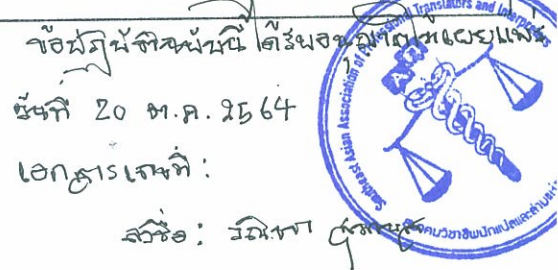 ข้อบัญญัติฉบับนี้ ได้รับอนุญาตให้เผยแพร่
วันที่ 20 ต.ค. 2564
เอกสารเลขที่ :
ลงชื่อ : วณิชชา
Southeast Asian Association of Professional Translators and Interpreters
สมาคมวิชาชีพนักแปลและล่าม